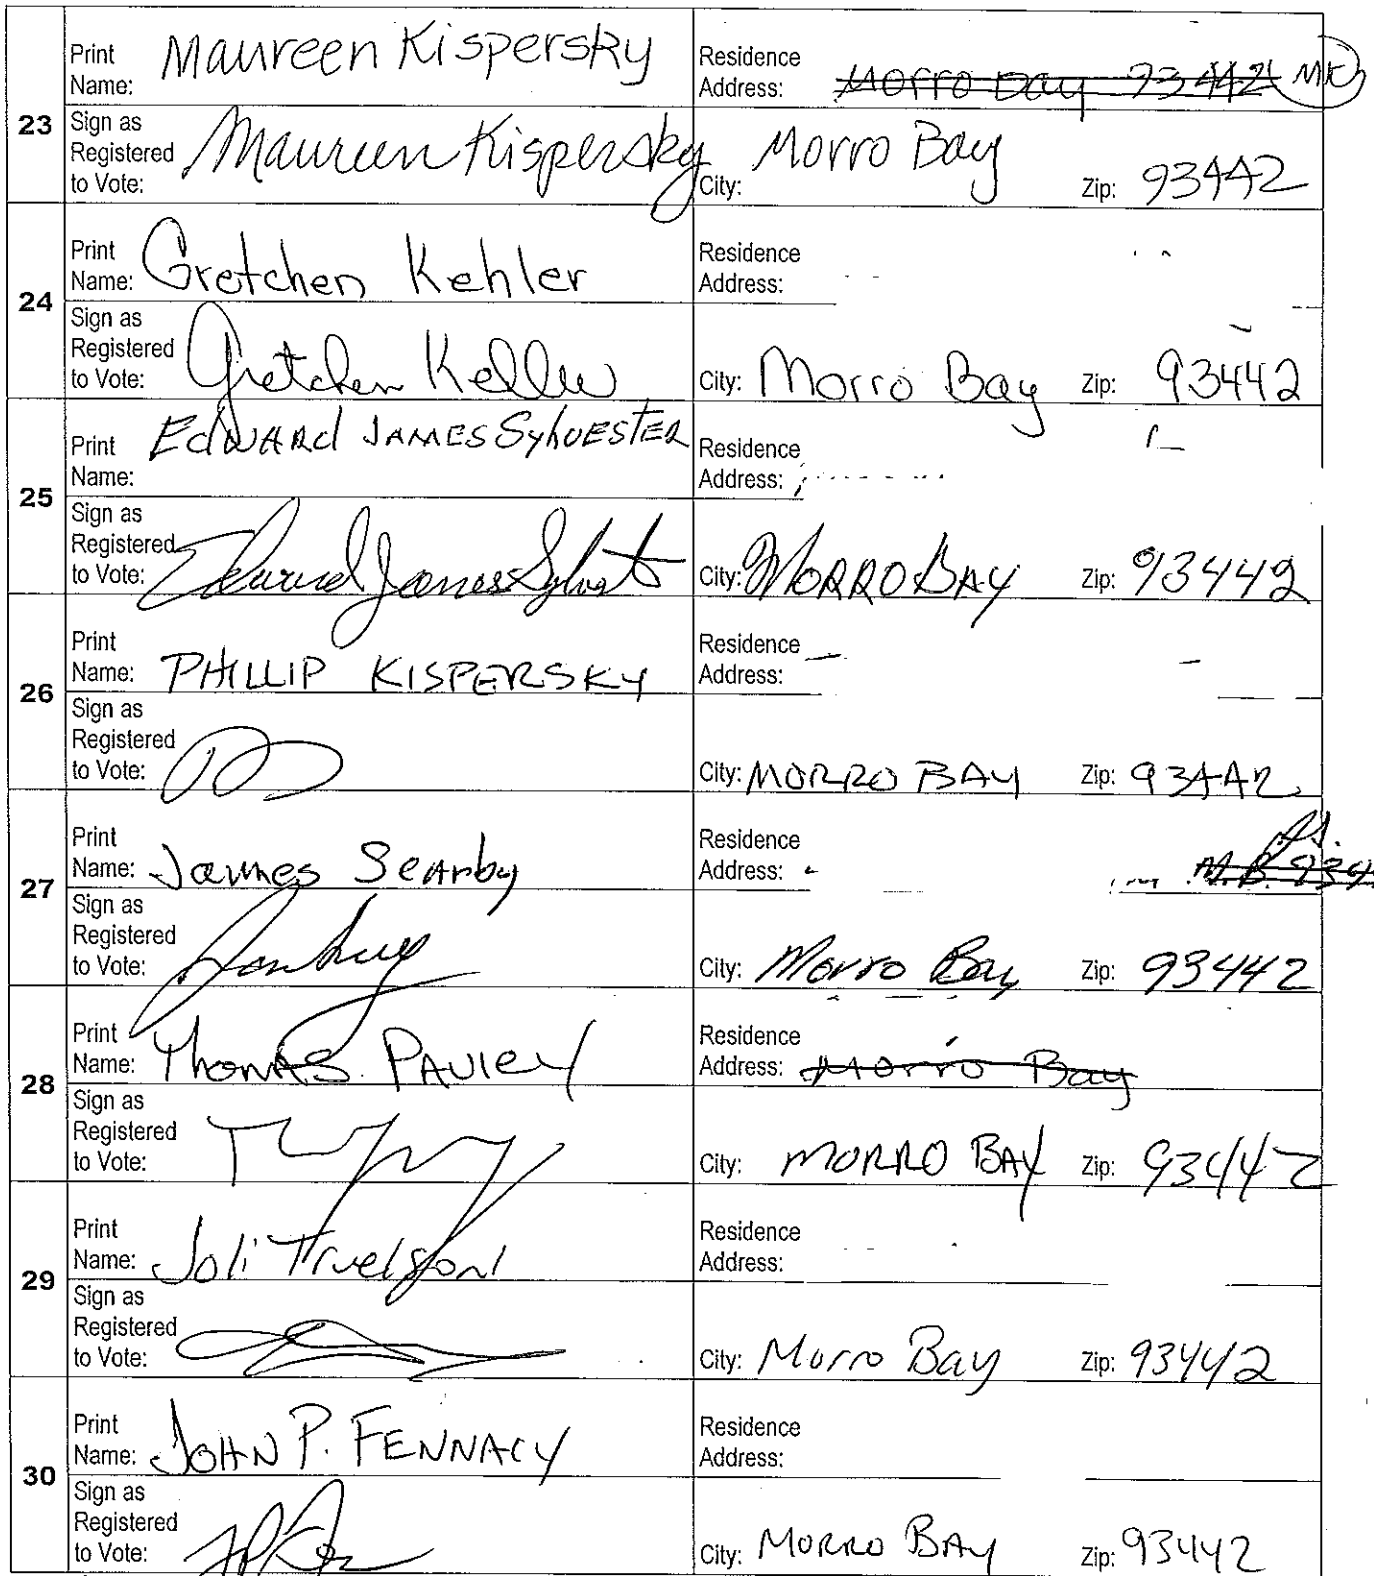 Print Name: Maureen Kispersky
Residence Address: Morro Bay 93442 MK
23
Sign as Registered to Vote: Maureen Kispersky
City: Morro Bay Zip: 93442
Print Name: Gretchen Kehler
Residence Address:
24
Sign as Registered to Vote: Gretchen Kehler
City: Morro Bay Zip: 93442
Print Name: Edward James Sylvester
Residence Address:
25
Sign as Registered to Vote: Edward James Sylvest
City: Morro Bay Zip: 93442
Print Name: PHILLIP KISPERSKY
Residence Address:
26
Sign as Registered to Vote:
City: MORRO BAY Zip: 93442
Print Name: James Searby
Residence Address: M.B. 934
27
Sign as Registered to Vote:
City: Morro Bay Zip: 93442
Print Name: Thomas Pauley
Residence Address: Morro Bay
28
Sign as Registered to Vote:
City: MORRO BAY Zip: 93442
Print Name: Joli Truelson
Residence Address:
29
Sign as Registered to Vote:
City: Morro Bay Zip: 93442
Print Name: JOHN P. FENNACY
Residence Address:
30
Sign as Registered to Vote:
City: MORRO BAY Zip: 93442